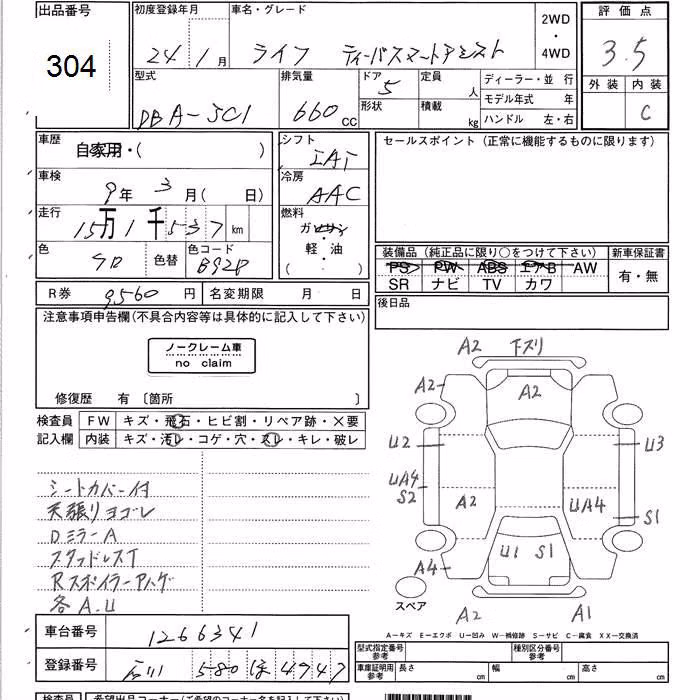 出品番号
304
初度登録年月
24 / 1 月
車名・グレード
ライフ ディーバスマートアシスト
2WD
・
4WD
評価点
3.5
外装 内装
C
型式
DBA-JC1
排気量
660 cc
ドア 5
形状
定員 人
積載 kg
ディーラー・並 行
モデル年式 年
ハンドル 左・右
車歴
自家用・( )
シフト
IAT
セールスポイント (正常に機能するものに限ります)
車検
9 年 3 月( 日)
冷房
AAC
走行
15万1千537 km
燃料
ガソリン
・
軽 油
( ・ )
色
色替
色コード
B92P
装備品 (純正品に限り○をつけて下さい)
PS PW ABS エアB AW
SR ナビ TV カワ
新車保証書
有・無
R券 9560 円
名変期限 月 日
後日品
注意事項申告欄(不具合内容等は具体的に記入して下さい)
ノークレーム車
no claim
修復歴 有 〔箇所 〕
検査員
記入欄
FW キズ・飛石・ヒビ割・リペア跡・×要
内装 キズ・汚レ・コゲ・穴・スレ・キレ・破レ
シートカバー付
天張りヨゴレ
DミラーA
スタッドレスT
Rスポイラーアハゲ
各A.U
A2 下スリ
A2
A2
U2
U3
UA4
S2
A2
UA4
S1
U1 S1
A4
スペア
A2
A1
A―キズ E―エクボ U―凹み W―補修跡 S―サビ C―腐食 XX―交換済
車台番号
1266341
登録番号
石川 580 ほ 4747
型式指定番号
参考
種別区分番号
参考
車庫証明用
参考
長さ cm
幅 cm
高さ cm
検査員
希望出品コーナー(ご希望のコーナー名を記入して下さい)